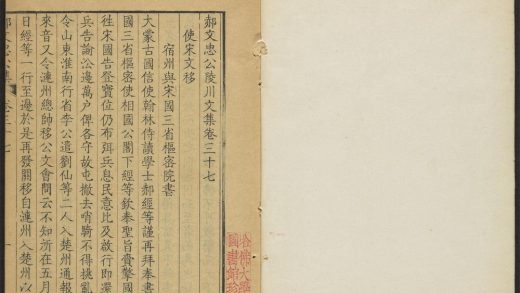 郝文忠公陵川文集卷三十七
使宋文移
宿州與宋國三省樞密院書
大蒙古國信使翰林侍讀學士郝經等謹再拜奉書
國三省樞密使相國公閣下經等欽奉聖旨賫擎國
徃宋國告登寶位仍布弭兵息民意比及啟行即
兵告諭㳂邊萬户俾各守故屯撤去哨騎不得擾亂
令山東淮南行省李公遣劉仙等二人入楚州通報
來音又令漣州總帥移公文會問云不知所在五月
日經等一行至邊於是再發關移自漣州入楚州以
郝文忠公集 卷三十七
哈佛大
圖書館珍